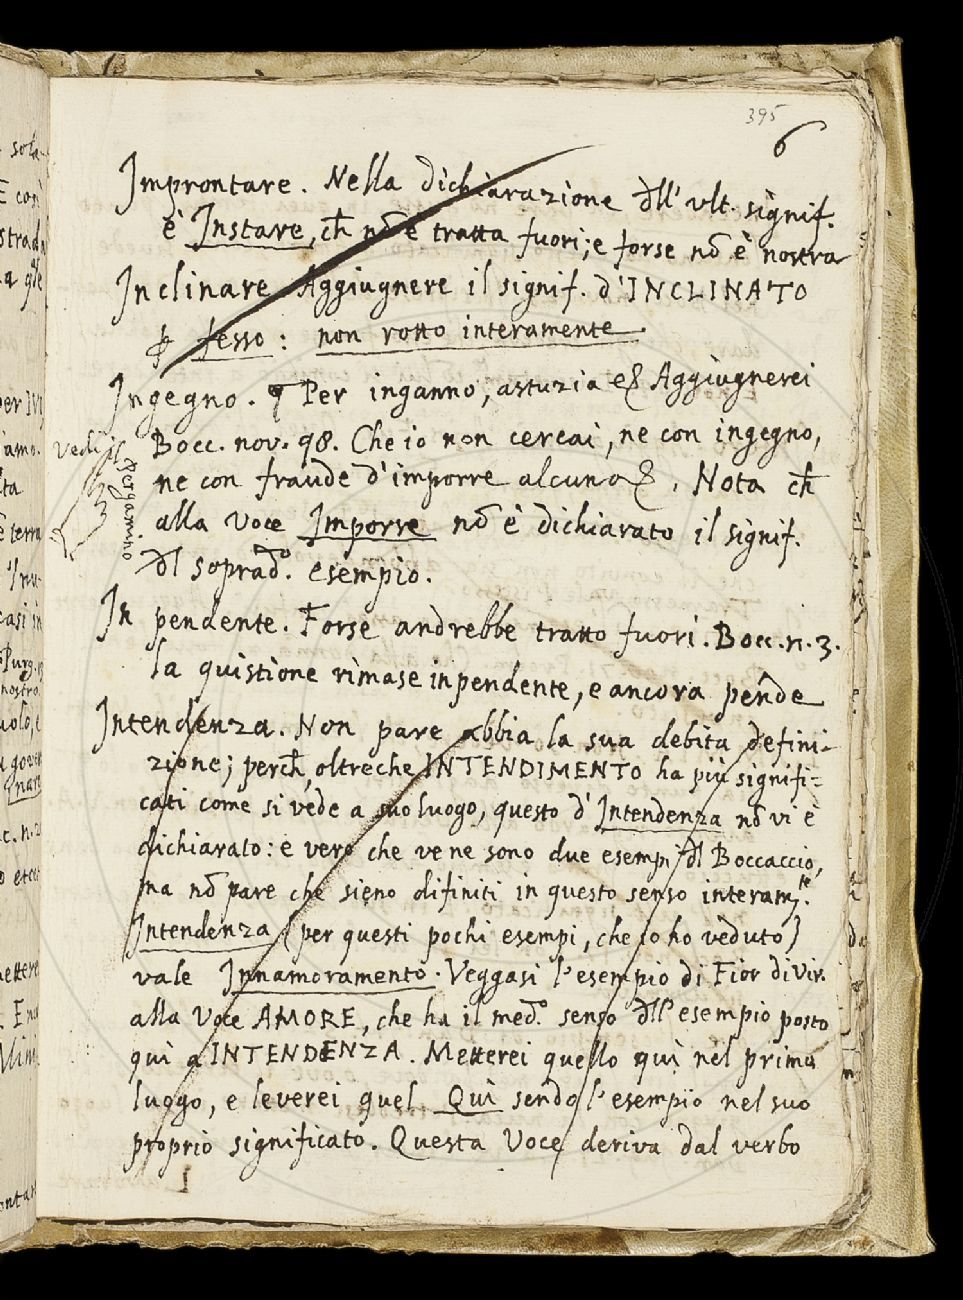 395
6
Improntare. Nella dichiarazione dll' vlt. signif.
è Instare, ch̄ nō è tratta fuori; e forse nō è nostra
Inclinare Aggiugnere il signif. d'INCLINATO
fesso: non rotto interamente
Ingegno. Per inganno, astuzia &c Aggiugnerei
Bocc. nov. 98. Che io non cercai, ne con ingegno,
ne con fraude d'imporre alcuna &c. Nota ch̄
alla Voce Imporre nō è dichiarato il signif.
dl soprad.º esempio.
Vedi il Pergamino
In pendente. Forse andrebbe tratto fuori. Bocc. n. 3.
la quistione rimase in pendente, e ancora pende
Intendenza. Non pare abbia la sua debita defini-
zione; perch̄, oltreche INTENDIMENTO ha più signifi=
cati come si vede a suo luogo, questo d'Intendenza nō vi è
dichiarato: e vero che ve ne sono due esempi dl Boccaccio,
ma nō pare che sieno difiniti in questo senso interam.te
Intendenza (per questi pochi esempi, che io ho veduto)
vale Innamoramento. Veggasi l'esempio di Fior di Vir.
alla Voce AMORE, che ha il med.º senso dll' esempio posto
quì a INTENDENZA. Metterei quello quì nel primo
luogo, e leverei quel Quì sendo l'esempio nel suo
proprio significato. Questa Voce deriva dal verbo